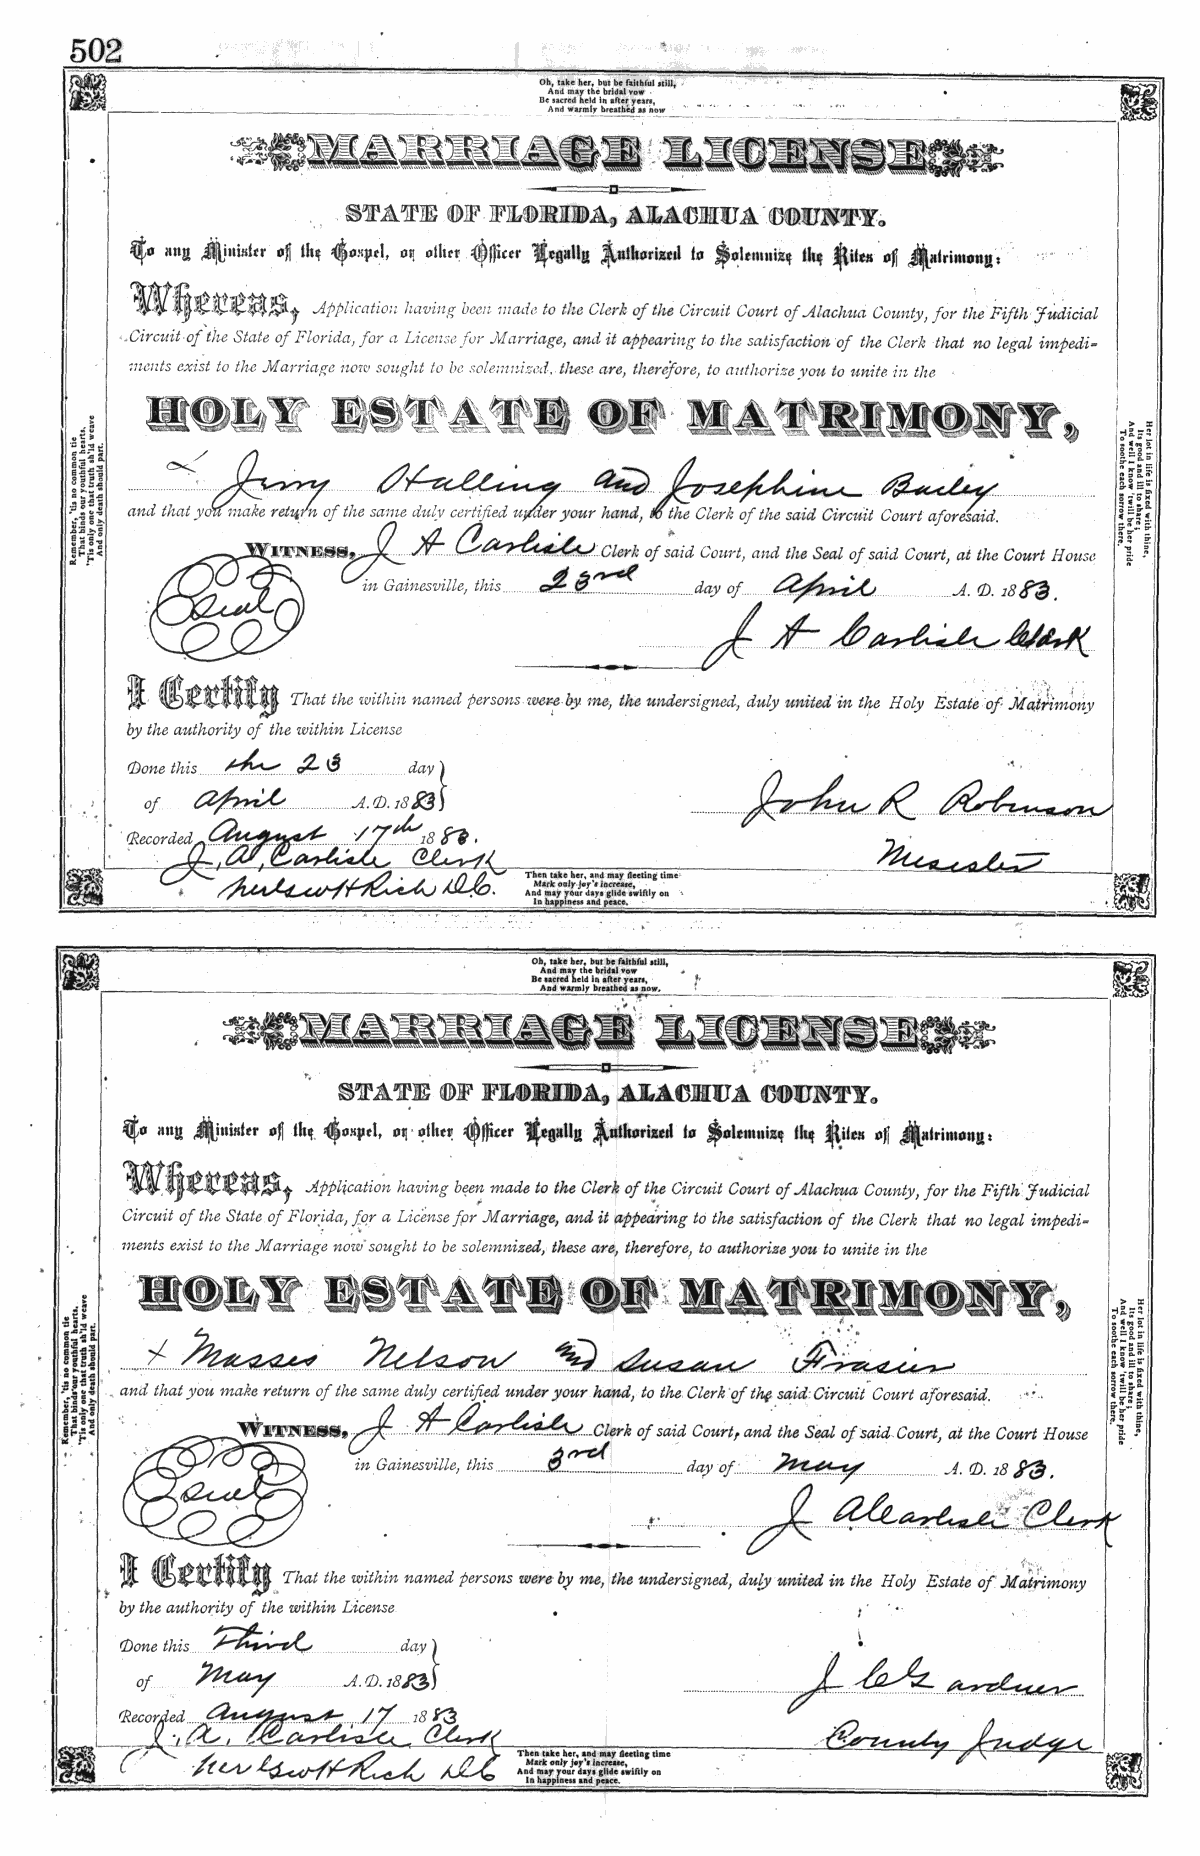 502
Oh, take her, but be faithful still,
And may the bridal vow
Be sacred held in after years,
And warmly breathed as now
MARRIAGE LICENSE
STATE OF FLORIDA, ALACHUA COUNTY.
To any Minister of the Gospel, or other Officer Legally Authorized to Solemnize the Rites of Matrimony:
Whereas, Application having been made to the Clerk of the Circuit Court of Alachua County, for the Fifth Judicial
Circuit of the State of Florida, for a License for Marriage, and it appearing to the satisfaction of the Clerk that no legal impedi-
ments exist to the Marriage now sought to be solemnized, these are, therefore, to authorize you to unite in the
HOLY ESTATE OF MATRIMONY,
Jerry Halling and Josephine Bailey
and that you make return of the same duly certified under your hand, to the Clerk of the said Circuit Court aforesaid.
WITNESS, J A Carlisle Clerk of said Court, and the Seal of said Court, at the Court House
Seal
in Gainesville, this 23rd day of April A. D. 1883.
J A Carlisle Clerk
I Certify That the within named persons were by me, the undersigned, duly united in the Holy Estate of Matrimony
by the authority of the within License
Done this the 23 day
of April A.D. 1883
John R Robinson
Recorded August 17th 1883.
J. A. Carlisle Clerk
Mesester
H Rich D.C.
Then take her, and may fleeting time
Mark only joy's increase,
And may your days glide swiftly on
In happiness and peace.
Remember, 'tis no common tie
That binds our youthful hearts,
'Tis only one that truth sh'ld weave
And only death should part.
Her lot in life is fixed with thine,
Its good and ill to share;
And well I know 'twill be her pride
To soothe each sorrow there.
Oh, take her, but be faithful still,
And may the bridal vow
Be sacred held in after years,
And warmly breathed as now.
MARRIAGE LICENSE
STATE OF FLORIDA, ALACHUA COUNTY.
To any Minister of the Gospel, or other Officer Legally Authorized to Solemnize the Rites of Matrimony:
Whereas, Application having been made to the Clerk of the Circuit Court of Alachua County, for the Fifth Judicial
Circuit of the State of Florida, for a License for Marriage, and it appearing to the satisfaction of the Clerk that no legal impedi-
ments exist to the Marriage now sought to be solemnized, these are, therefore, to authorize you to unite in the
HOLY ESTATE OF MATRIMONY,
x Masses Nelson and Susan Frasier
and that you make return of the same duly certified under your hand, to the Clerk of the said Circuit Court aforesaid.
WITNESS, J A Carlisle Clerk of said Court, and the Seal of said Court, at the Court House
Seal
in Gainesville, this 3rd day of May A. D. 1883.
J A Carlisle Clerk
I Certify That the within named persons were by me, the undersigned, duly united in the Holy Estate of Matrimony
by the authority of the within License
Done this Third day
of May A.D. 1883
J C Gardner
Recorded August 17 1883
J. A. Carlisle Clerk
County Judge
H Rich D C
Then take her, and may fleeting time
Mark only joy's increase,
And may your days glide swiftly on
In happiness and peace.
Remember, 'tis no common tie
That binds our youthful hearts,
'Tis only one that truth sh'ld weave
And only death should part.
Her lot in life is fixed with thine,
Its good and ill to share;
And well I know 'twill be her pride
To soothe each sorrow there.